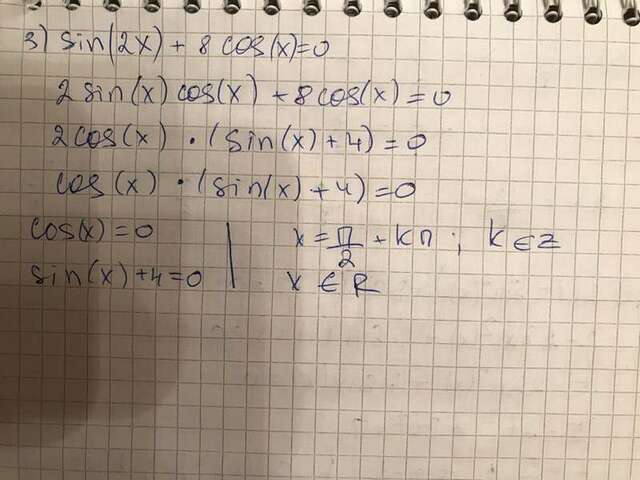 3) sin(2x) + 8 cos(x)=0
2 sin(x) cos(x) + 8 cos(x) = 0
2 cos(x) · (sin(x) + 4) = 0
cos(x) · (sin(x) + 4) = 0
cos(x) = 0 | x = π/2 + kπ ; k ∈ Z
sin(x) + 4 = 0 | x ∈ R